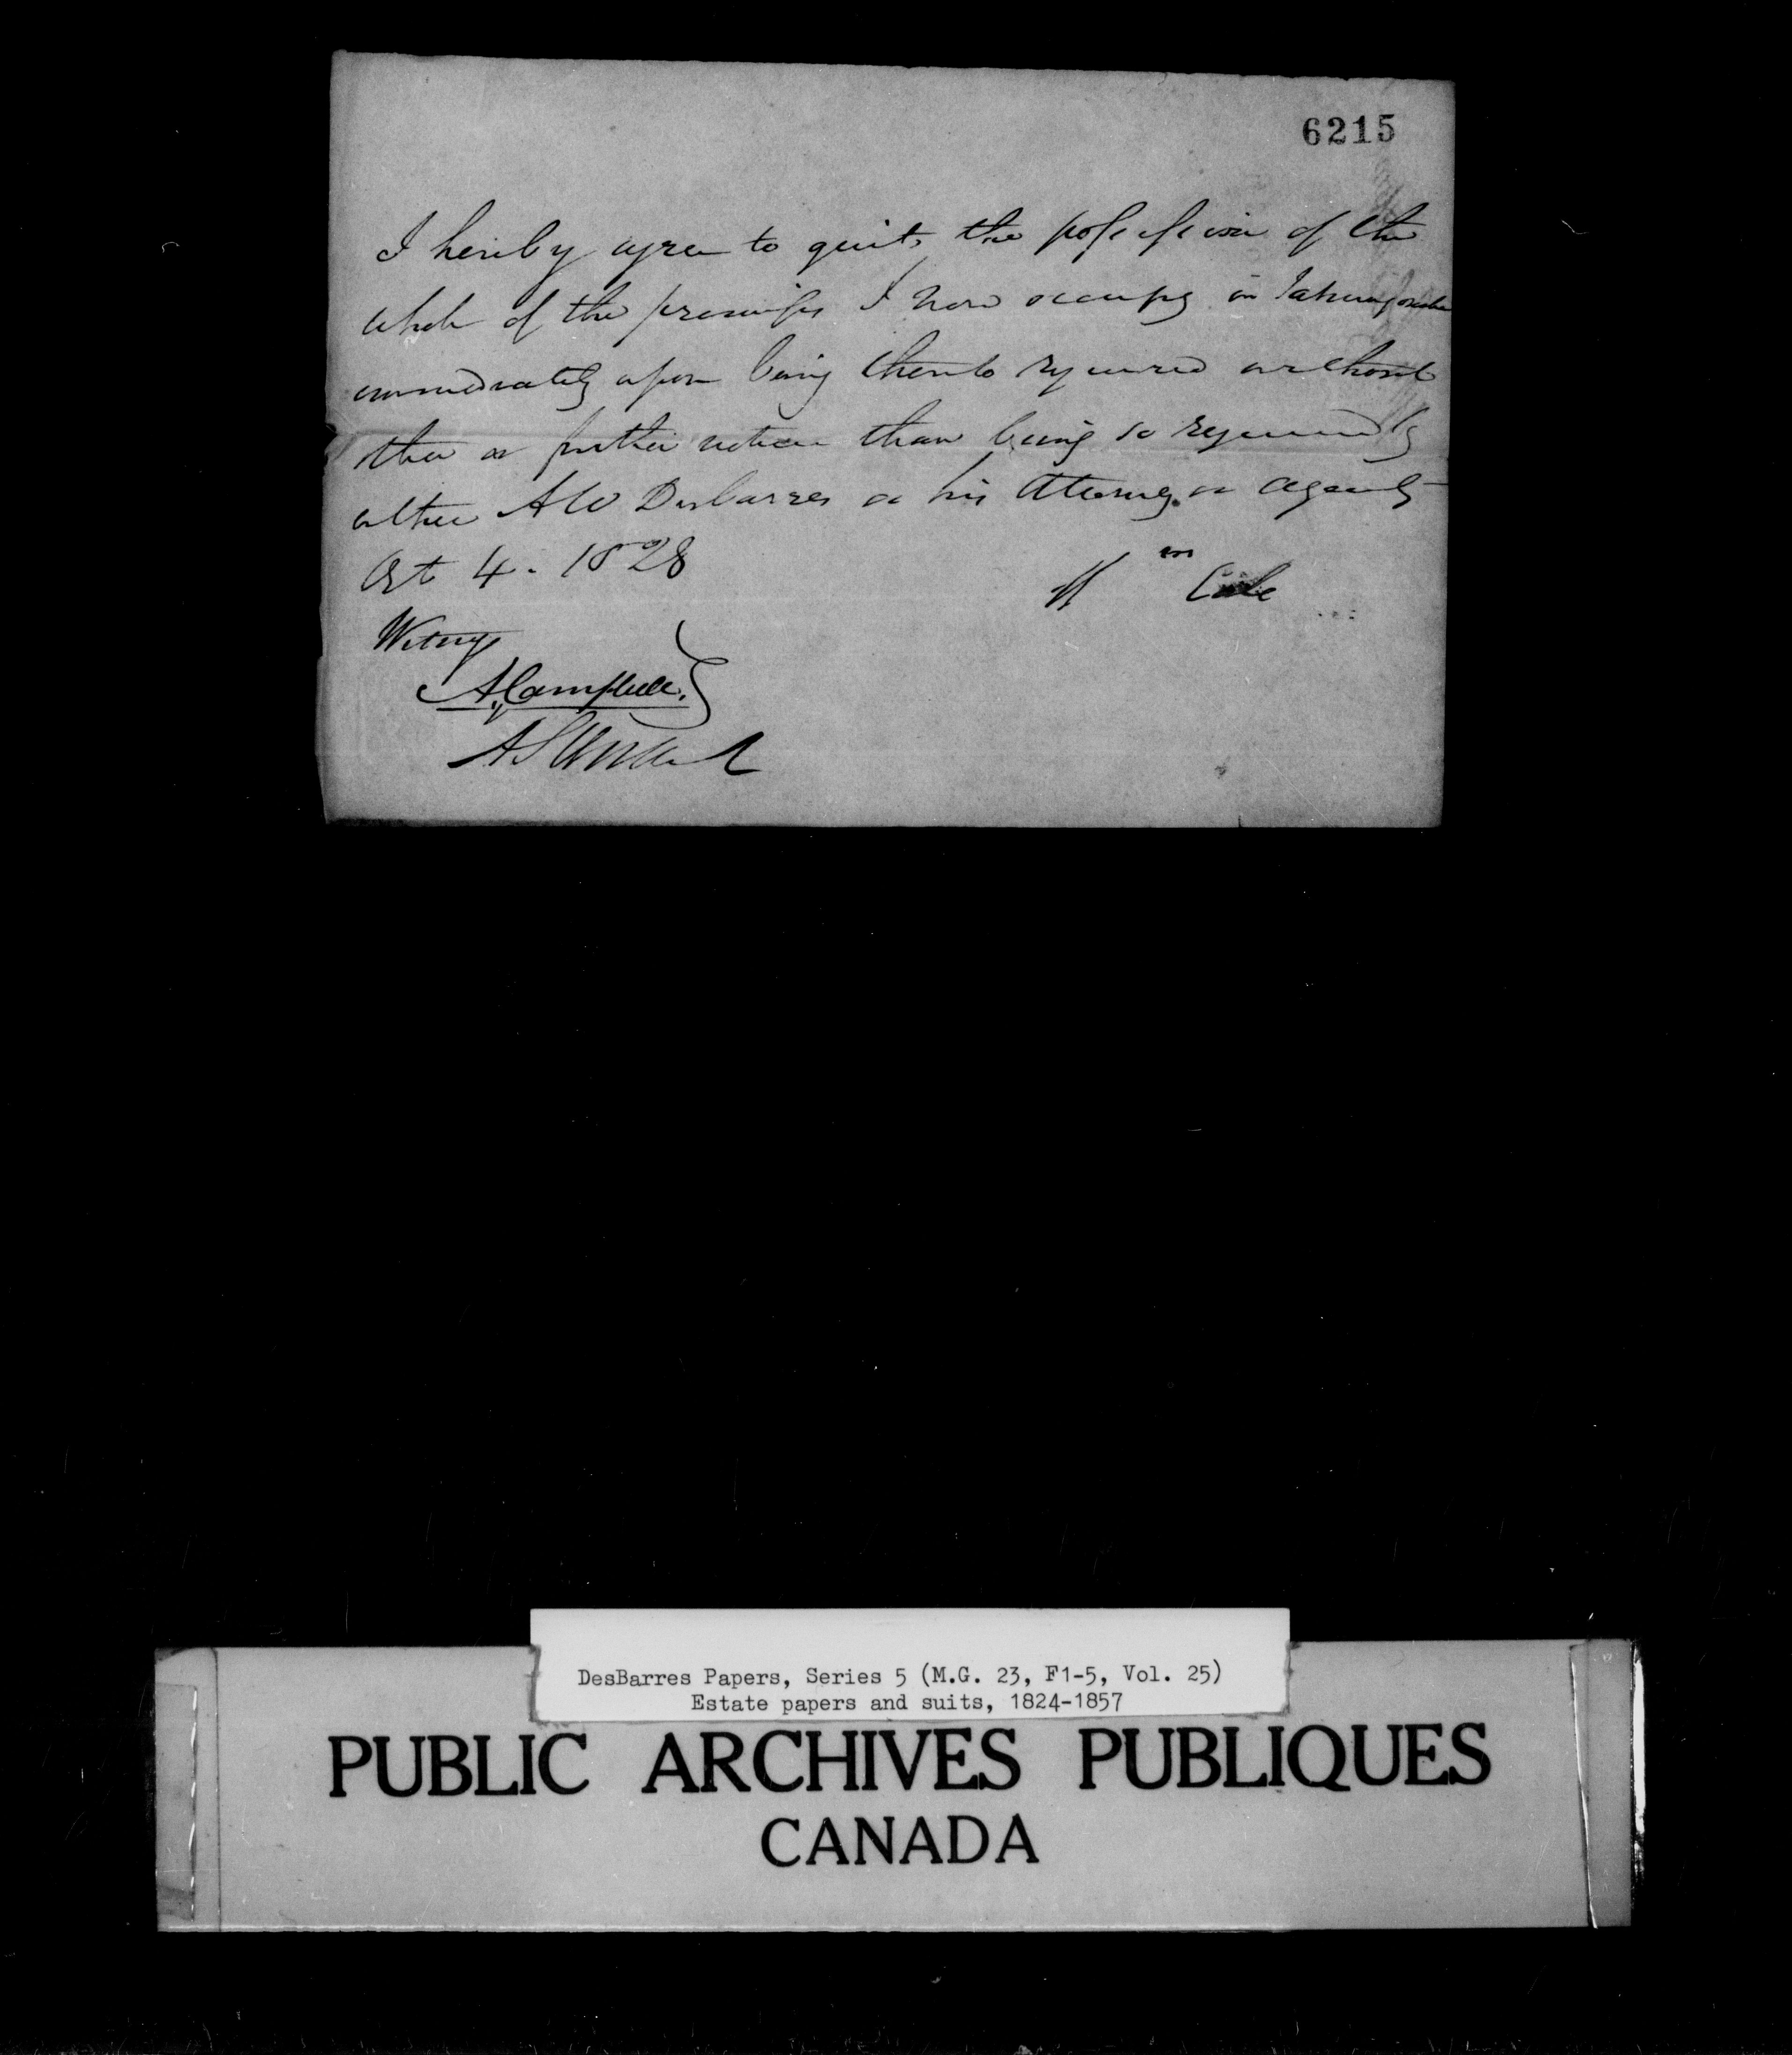 6215
I hereby agree to quit the possession of the
whole of the premises I now occupy in Tatamagouche
immediately upon being thereto required without
other or further notice than being so required by
either AW Desbarres or his Attorney or Agents
Oct 4. 1828
Wm Cole
Witness
A. Campbell
DesBarres Papers, Series 5 (M.G. 23, F1-5, Vol. 25)
Estate papers and suits, 1824-1857
PUBLIC ARCHIVES PUBLIQUES
CANADA